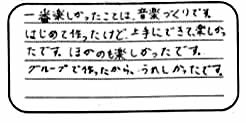 一番楽しかったことは、音楽づくりです。
はじめて作ったけど、上手にできて、楽しかっ
たです。ほかのも楽しかったです。
グループで作ったから、うれしかったです。